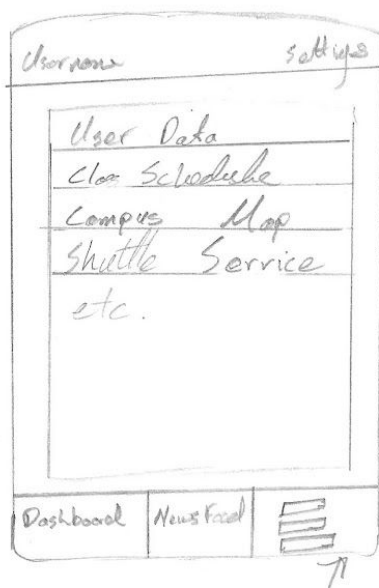 Username Settigs
User Data
Clas Schedushe
Campus Map
Shuttle Service
etc.
Dashboard News Feed